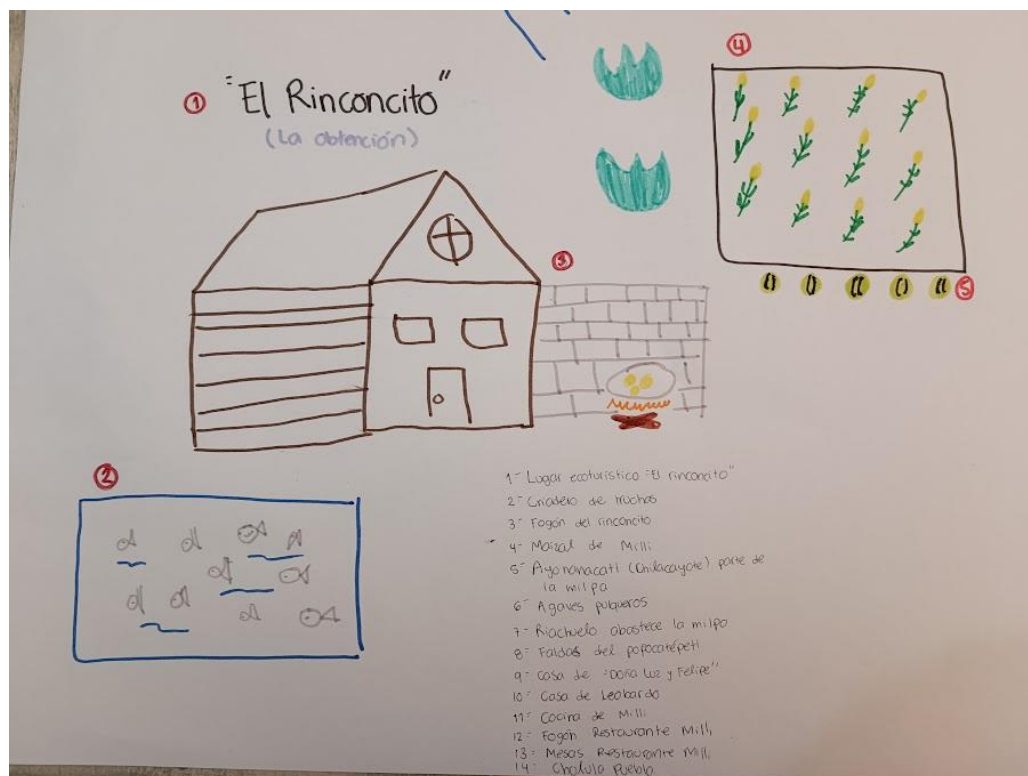 ① "El Rinconcito"
(La obtención)
④
③
⑤
②
1- Lugar ecoturístico "El rinconcito"
2- Criadero de truchas
3- Fogón del rinconcito
4- Maizal de Milli
5- Ayonanacatl (Chilacayote) parte de
la milpa
6- Agaves pulqueros
7- Riachuelo abastece la milpa
8- Faldas del popocatépetl
9- Casa de "Doña Luz y Felipe"
10- Casa de Leobardo
11- Cocina de Milli
12- Fogón Restaurante Milli
13- Mesas Restaurante Milli
14- Cholula Puebla